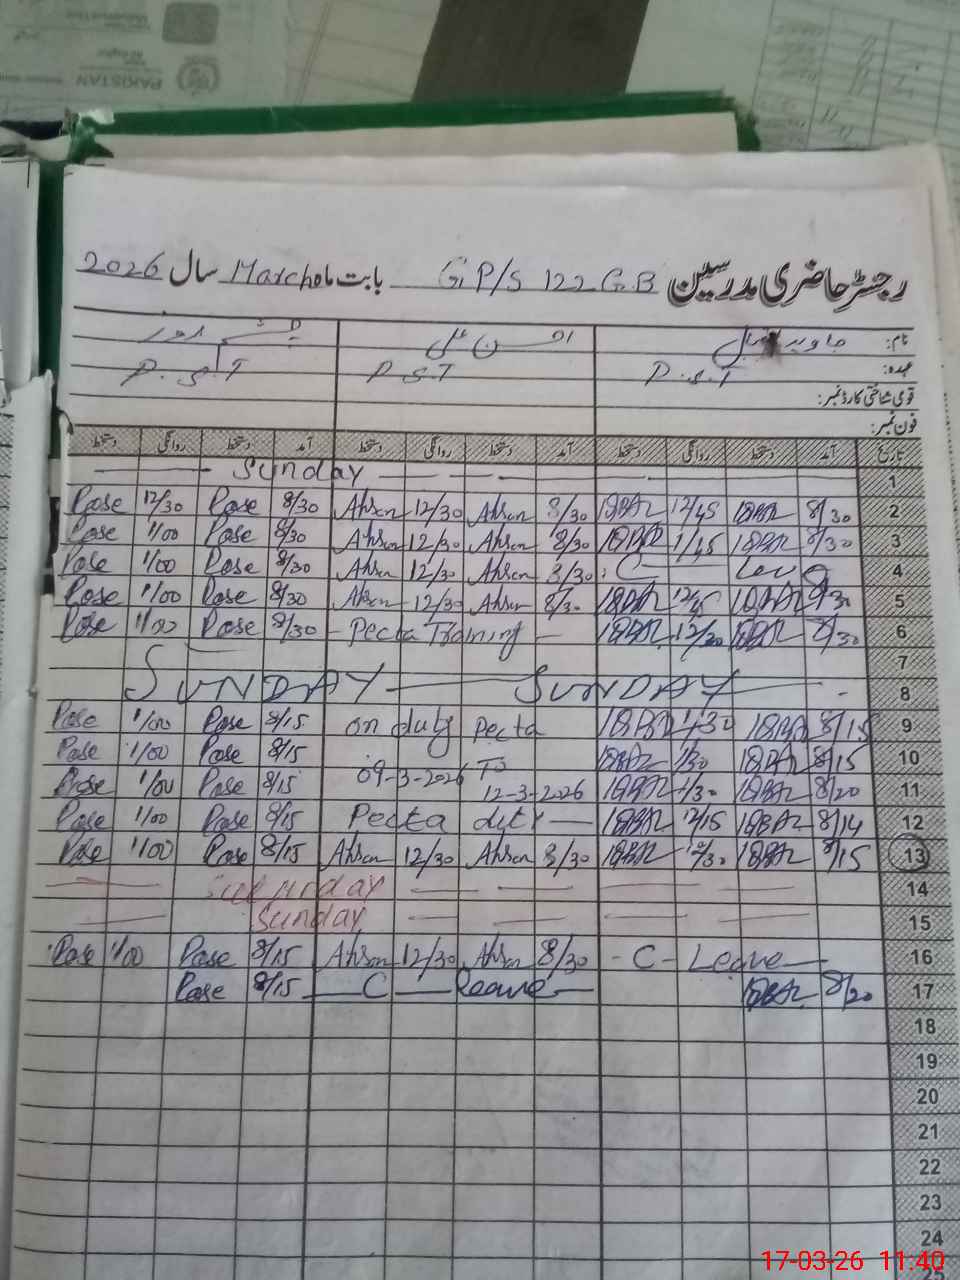 رجسٹر حاضری مدرسین G.P/S 122 G.B بابت ماہ March سال 2026
نام: جاوید اقبال احسن علی
عہدہ: P.S.T P.S.T P.S.T
قومی شناختی کارڈ نمبر:
فون نمبر:
تاریخ آمد دستخط روانگی دستخط آمد دستخط روانگی دستخط آمد دستخط روانگی دستخط
— Sunday — 1
Rose 12/30 Rose 8/30 Ahsan 12/30 Ahsan 8/30 IQBAL 12/45 IQBAL 8/30 2
Rose 1/00 Rose 8/30 Ahsan 12/30 Ahsan 8/30 IQBAL 1/45 IQBAL 8/30 3
Rose 1/00 Rose 8/30 Ahsan 12/30 Ahsan 8/30 C — 4
Rose 1/00 Rose 8/30 Ahsan 12/30 Ahsan 8/30 IQBAL 12/45 IQBAL 8/30 5
Rose 1/00 Rose 8/30 - Pecta Training - IQBAL 12/30 IQBAL 8/30 6
7
SUNDAY — SUNDAY — 8
Rose 1/00 Rose 8/15 on duty Pecta IQBAL 1/30 IQBAL 8/15 9
Rose 1/00 Rose 8/15 09-3-2026 To IQBAL 1/30 IQBAL 8/15 10
Rose 1/00 Rose 8/15 12-3-2026 IQBAL 1/30 IQBAL 8/20 11
Rose 1/00 Rose 8/15 Pecta duty — IQBAL 12/15 IQBAL 8/14 12
Rose 1/00 Rose 8/15 Ahsan 12/30 Ahsan 8/30 IQBAL 12/30 IQBAL 8/15 13
— Saturday — 14
— Sunday — 15
Rose 1/00 Rose 8/15 Ahsan 12/30 Ahsan 8/30 - C - Leave — 16
Rose 8/15 — C — Leave — IQBAL 8/20 17
18
19
20
21
22
23
24
25
17-03-26 11:40
PAKISTAN